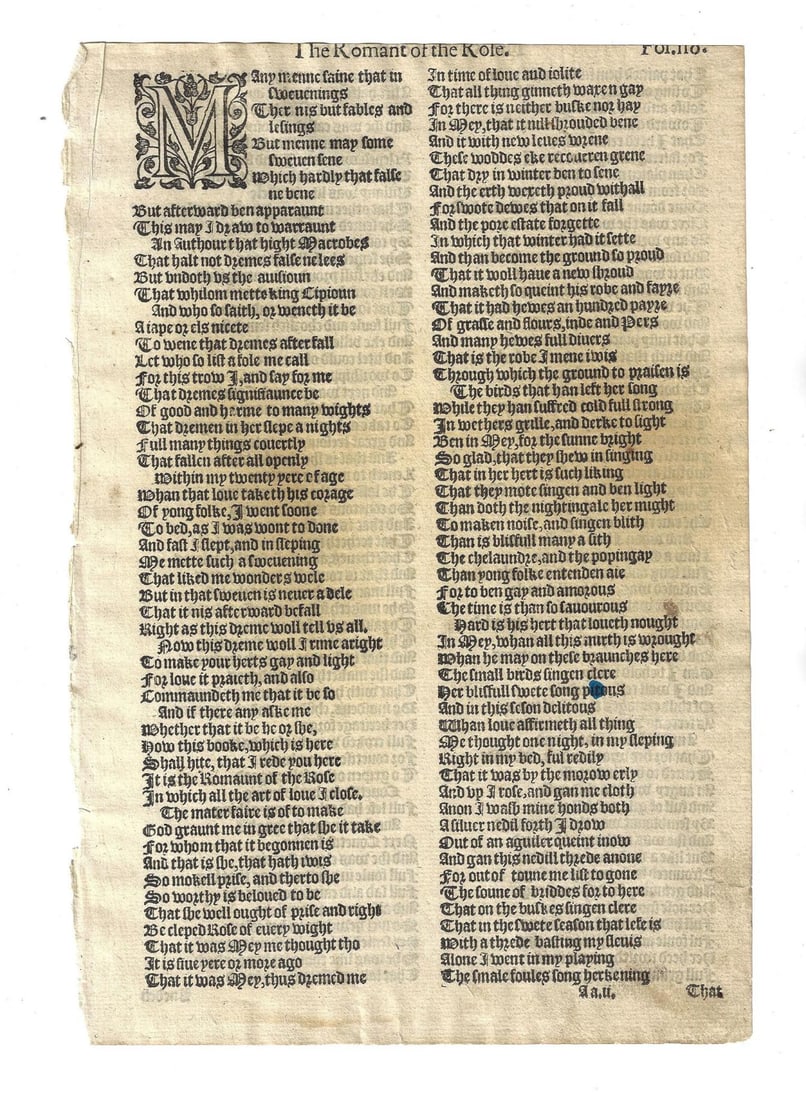 The Romant of the Rose. Fol.110.
MAny menne saine that in
sweuenings
Ther nis but fables and
lesings
But menne may some
sweuen sene
Which hardly that false
ne bene
But afterward ben apparaunt
This may I draw to warraunt
An Authour that hight Macrobes
That halt not dremes false ne lees
But vndoth vs the auisioun
That whilom mette king Cipioun
And who so saith, or weneth it be
A iape or els nicete
To wene that dremes after fall
Let who so list a fole me call
For this trow I, and say for me
That dremes signifiaunce be
Of good and harme to many wights
That dremen in her slepe a nights
Full many things couertly
That fallen after all openly
Within my twenty yere of age
Whan that loue taketh his corage
Of yong folke, I went soone
To bed, as I was wont to done
And fast I slept, and in sleping
Me mette such a sweuening
That liked me wonders wele
But in that sweuen is neuer a dele
That it nis afterward befall
Right as this dreme woll tell vs all.
Now this dreme woll I rime aright
To make your herts gay and light
For loue it praieth, and also
Commaundeth me that it be so
And if there any aske me
Whether that it be he or she,
How this booke, which is here
Shall hite, that I rede you here
It is the Romaunt of the Rose
In which all the art of loue I close.
The mater faire is of to make
God graunt me in gree that she it take
For whom that it begonnen is
And that is she, that hath iwis
So mokell prise, and therto she
So worthy is beloued to be
That she well ought of prise and right
Be cleped Rose of euery wight
That it was Mey me thought tho
It is fiue yere or more ago
That it was Mey, thus dremed me
In time of loue and iolite
That all thing ginneth waxen gay
For there is neither buske nor hay
In Mey, that it nill shrouded bene
And it with new leues wrene
These woddes eke recoueren grene
That dry in winter ben to sene
And the erth wexeth proud withall
For swote dewes that on it fall
And the pore estate forgette
In which that winter had it sette
And than become the ground so proud
That it woll haue a new shroud
And maketh so queint his robe and fayre
That it had hewes an hundred payre
Of grasse and flours, inde and Pers
And many hewes full diuers
That is the robe I mene iwis
Through which the ground to praisen is
The birds that han left her song
While they han suffred cold full strong
In wethers grille, and derke to sight
Ben in Mey, for the sunne bright
So glad, that they shew in singing
That in her hert is such liking
That they mote singen and ben light
Than doth the nightingale her might
To maken noise, and singen blith
Than is blisfull many a sith
The chelaundre, and the popingay
Than yong folke entenden aie
For to ben gay and amorous
The time is than so sauourous
Hard is his hert that loueth nought
In Mey, whan all this mirth is wrought
Whan he may on these braunches here
The small birds singen clere
Her blisfull swete song pitous
And in this seson delitous
Whan loue affirmeth all thing
Me thought one night, in my sleping
Right in my bed, ful redily
That it was by the morow erly
And vp I rose, and gan me cloth
Anon I wash mine honds both
A siluer nedil forth I drow
Out of an aguiler queint inow
And gan this nedill threde anone
For out of toune me list to gone
The soune of briddes for to here
That on the buskes singen clere
That in the swete season that lefe is
With a threde basting my sleuis
Alone I went in my playing
The smale foules song herkening
Aa.ii. That